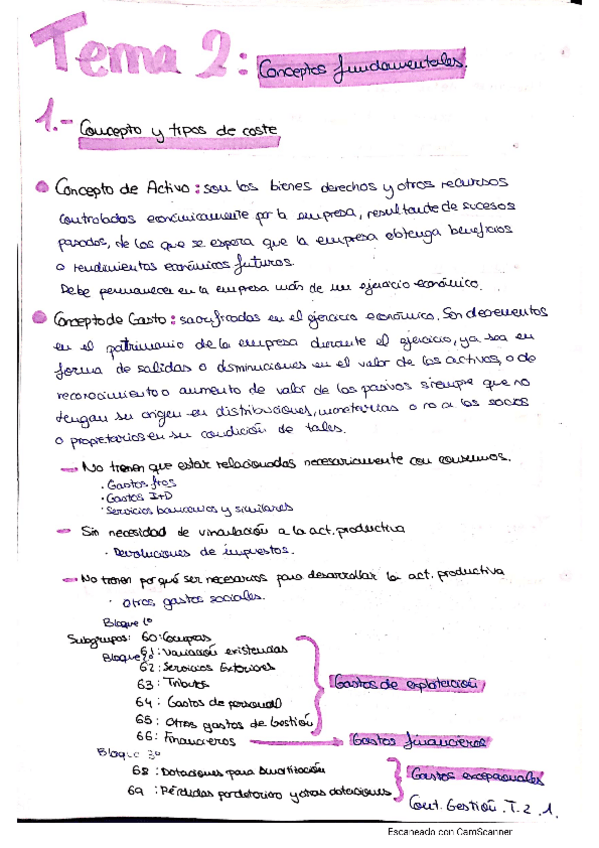 Tema 2: Conceptos fundamentales.
1.- Concepto y tipos de coste
Concepto de Activo: son los bienes derechos y otros recursos
controlados económicamente por la empresa, resultante de sucesos
pasados, de los que se espera que la empresa obtenga beneficios
o rendimientos económicos futuros.
Debe permanecer en la empresa más de un ejercicio económico.
Concepto de Gasto: sacrificadas en el ejercicio económico. Son decrementos
en el patrimonio de la empresa durante el ejercicio, ya sea en
forma de salidas o disminuciones en el valor de los activos, o de
reconocimiento o aumento de valor de los pasivos siempre que no
tengan su origen en distribuciones, monetarias o no a los socios
o propietarios en su condición de tales.
No tienen que estar relacionadas necesariamente con consumos.
· Gastos fros
· Gastos I+D
· Servicios bancarios y similares
Sin necesidad de vinculación a la act. productiva
· Devoluciones de impuestos.
No tienen por qué ser necesarios para desarrollar la act. productiva
· Otros gastos sociales.
Bloque 1º
Subgrupos: 60: Compras
61: Variación existencias
Bloque 2º
62: Servicios Exteriores
63: Tributos
64: Gastos de personal
65: Otros gastos de Gestión
Gastos de explotación
66: Financieros
Gastos financieros
Bloque 3º
68: Dotaciones para amortización
69: Pérdidas por deterioro y otras dotaciones
Gastos excepcionales
Cont. Gestión. T. 2. 1.
Escaneado con CamScanner